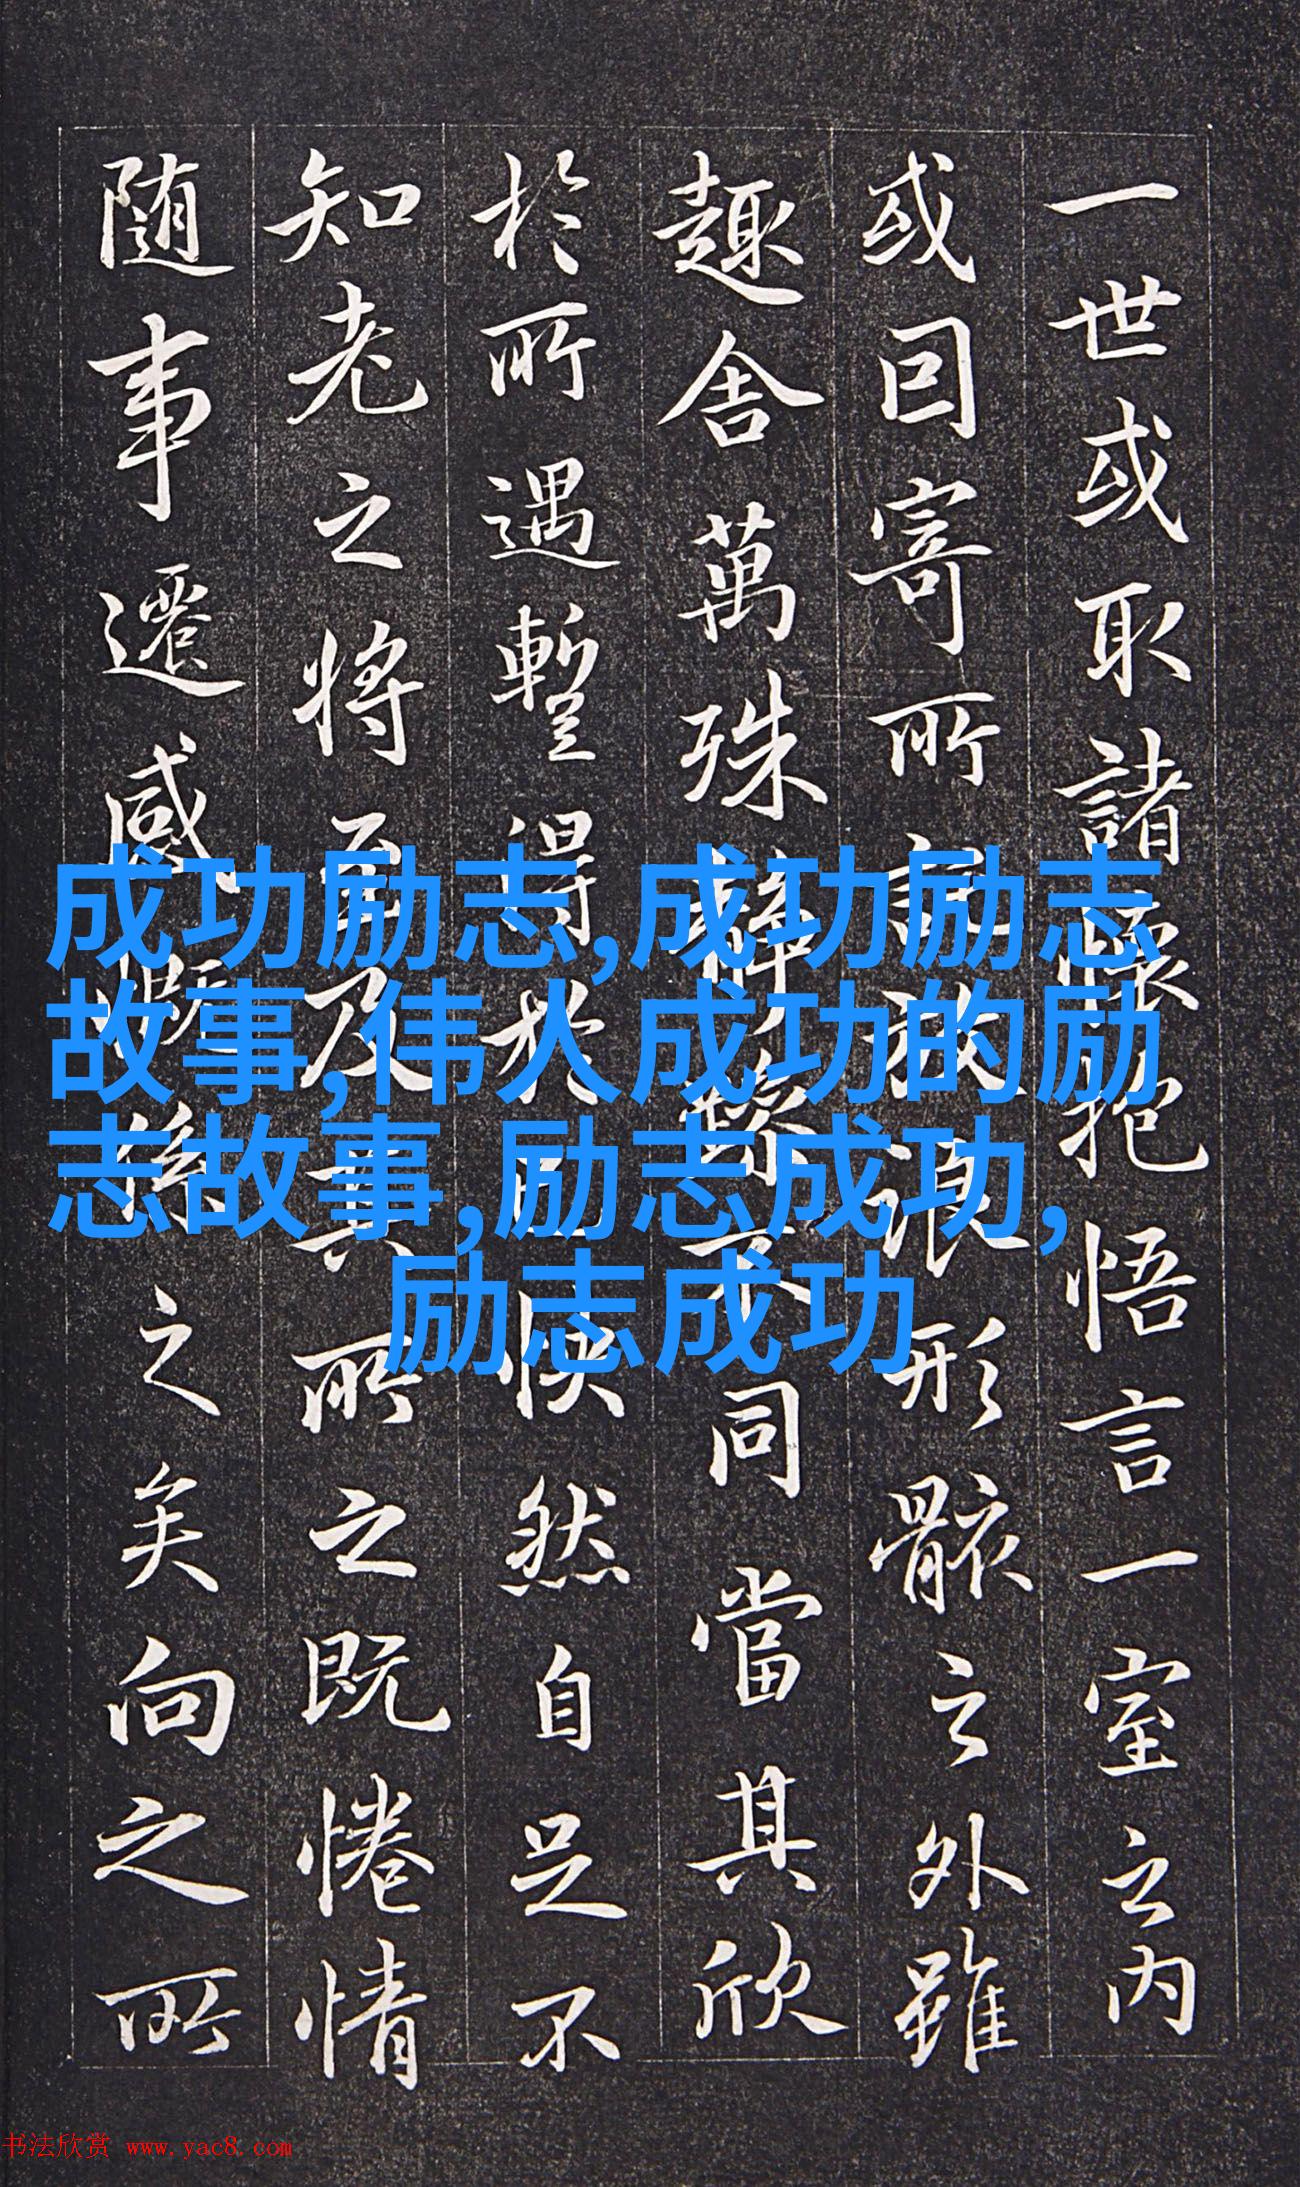 一世或取諸懷抱悟言一室之內
或囙寄所託放浪形骸之外雖
趣舍萬殊靜躁不同當其欣
於所遇暫得於己快然自足不
知老之將至及其所之既惓情
随事遷感慨係之矣向之所
成功励志,成功励志
故事,伟人成功的励
志故事,励志成功,
励志成功
书法欣赏 www.yac8.com